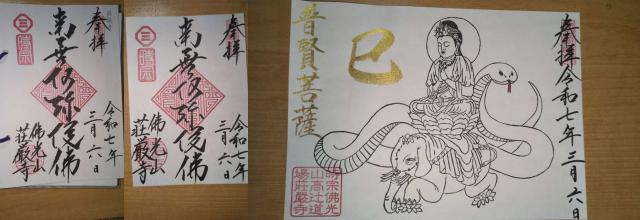 奉拝
南無阿弥陀佛
令和七年
三月六日
佛光山
荘厳寺
奉拝
南無阿弥陀佛
令和七年
三月六日
佛光山
荘厳寺
奉拝 令和七年三月六日
巳
普賢菩薩
明宗佛光
山高辻道
場荘厳寺